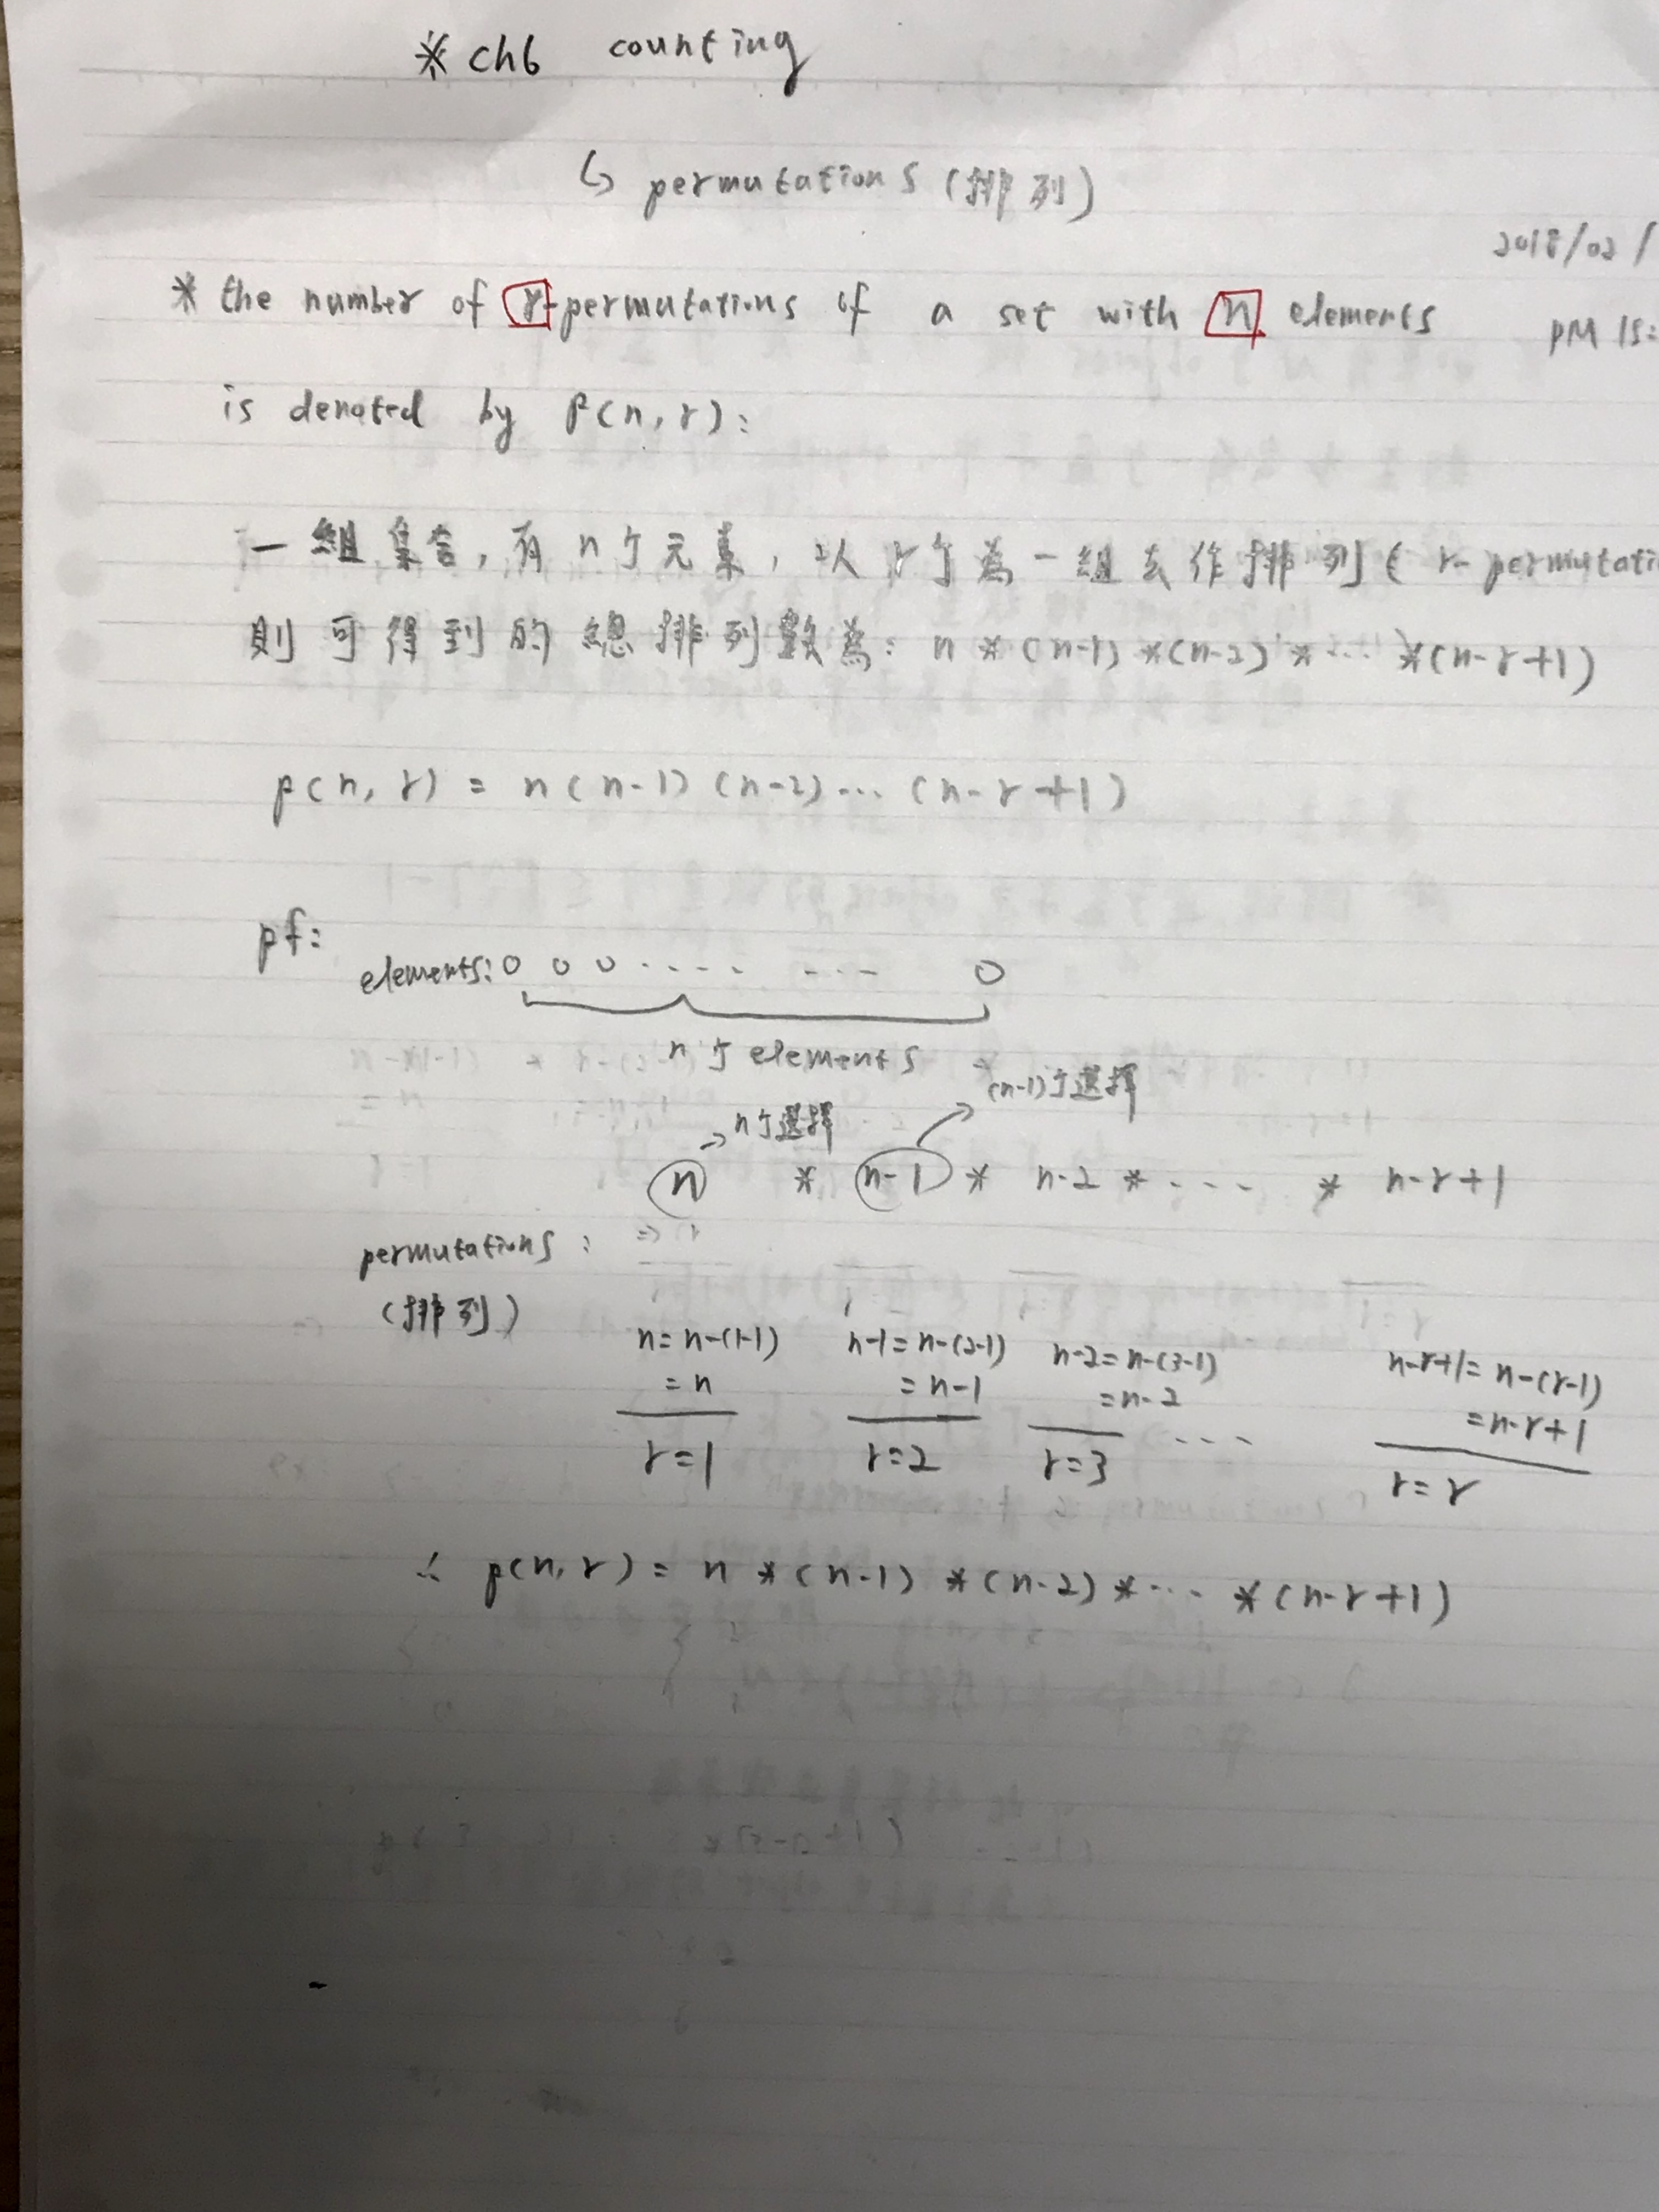 * ch6 counting
↳ permutations (排列)
2018/02/
* the number of r-permutations of a set with n elements
PM 15:
is denoted by P(n, r):
一組集合, 有n个元素, 以r个為一組去作排列( r-permutati
則可得到的總排列數為: n * (n-1) * (n-2) * ... * (n-r+1)
p(n, r) = n(n-1)(n-2)... (n-r+1)
pf:
elements: o o o ..... ... o
n个elements
→ n个選擇 (n-1)个選擇
n * n-1 * n-2 * .... * n-r+1
permutations:
(排列)
n=n-(1-1) n-1=n-(2-1) n-2=n-(3-1) n-r+1=n-(r-1)
=n =n-1 =n-2 =n-r+1
r=1 r=2 r=3 ... r=r
∴ p(n,r) = n * (n-1) * (n-2) * ... * (n-r+1)